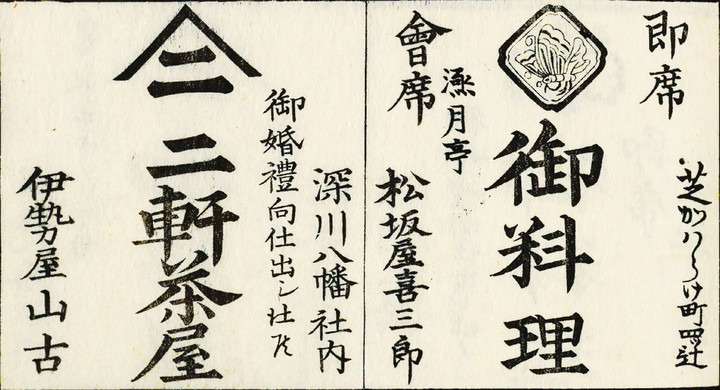 即席
芝かハらけ町四ツ辻
御料理
會席
月亭
松坂屋喜三郎
深川八幡社内
御婚禮向仕出し仕候
二
二軒茶屋
伊勢屋山古